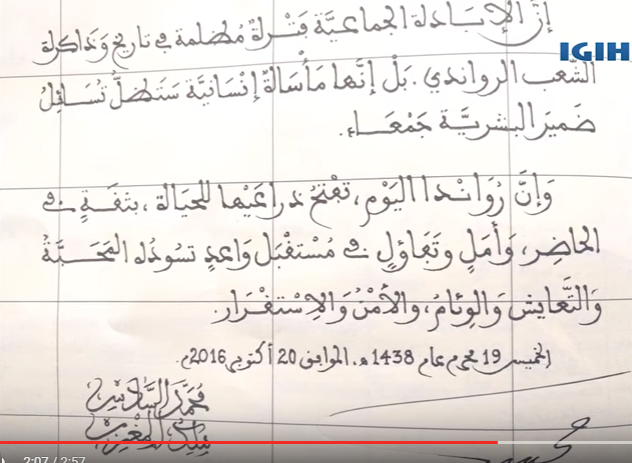 إنَّ الإبَادَلة الجماعيَّة فَتْرَةٌ مُظلمة في تاريخ وَذاكرة
IGIH
الشَّعب الرواندي. بَلْ إنَّها مَأسَاةٌ إنْسَانيَّة سَتَظلُّ تُسَائِلُ
ضَميرَ البَشريَّة جَمْعَاء.
وَإنَّ رُوَانْدا اليَوْم، تفْتحُ ذراعَيْها للحَيَاة، بثقَةٍ في
الحَاضِر، وَأمَلٍ وتَفَاؤلٍ في مُسْتقْبَل وَاعدٍ تسُودُه المَحَبَّةُ
وَالتَّعَايش وَالوئامُ، والأمْنُ وَالاسْتقْرَار.
الخميس 19 محرم عام 1438 هـ، الموافق 20 أكتوبر 2016م.
محمد السادس
ملك المغرب
2:07 / 2:57